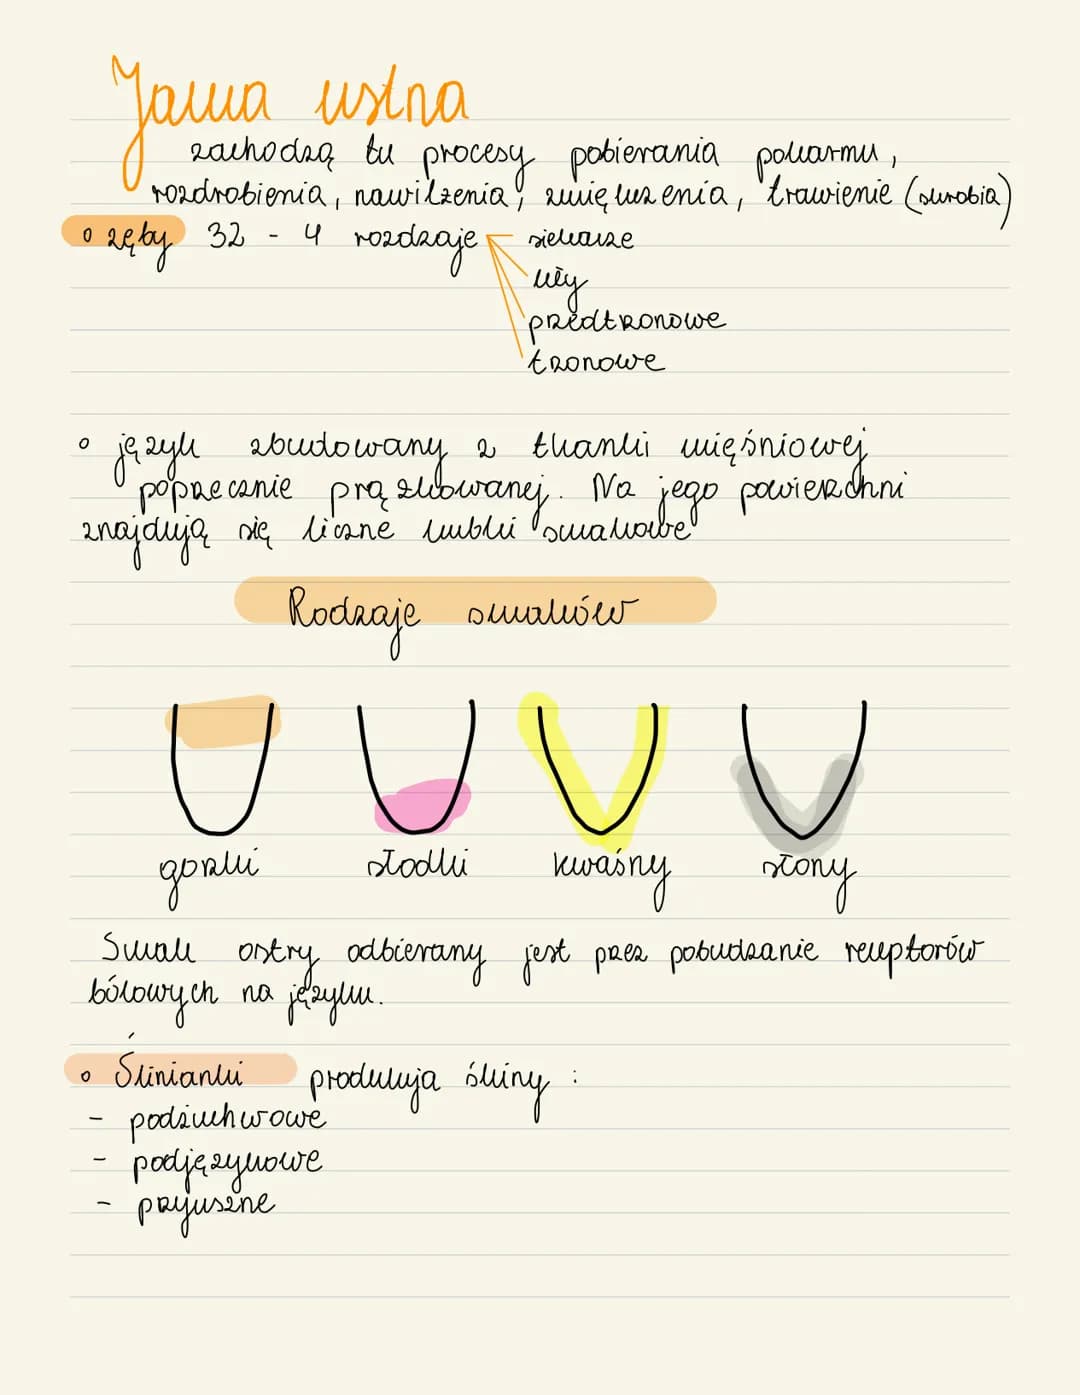 Jama ustna
zachodzą tu procesy pobierania pokarmu,
rozdrobienia, nawilżenia, zmiękczenia, trawienie (skrobia)
zęby 32 - 4 rozdzaje siekacze
kły
przedtrzonowe
trzonowe
język zbudowany z tkanki mięśniowej
poprzecznie prążkowanej. Na jego powierzchni
znajdują się liczne kubki smakowe
Rodzaje smaków
gorzki słodki kwaśny słony
Smak ostry odbierany jest przez pobudzanie receptorów
bólowych na języku.
Ślinianki produkują śliny :
- podżuchwowe
- podjęzykowe
- przyuszne